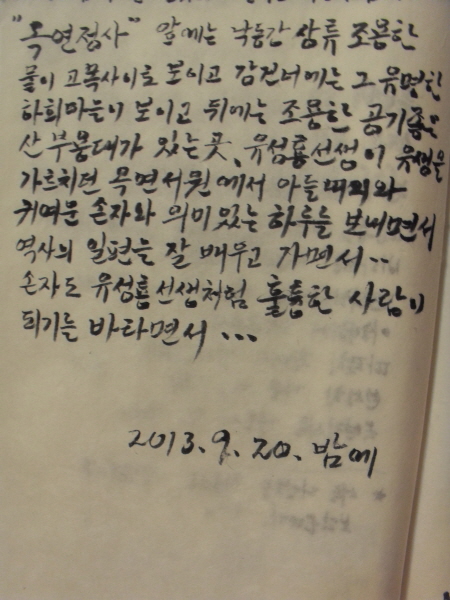 "옥연정사" 앞에는 낙동강 상류 조용한
물이 고목사이로 보이고 강건너에는 그 유명한
하회마을이 보이고 뒤에는 조용한 공기좋은
산 부용대가 있는 곳, 유성룡선생이 유생을
가르치던 옥연서원에서 아들내외와
귀여운 손자와 의미있는 하루를 보내면서
역사의 일편을 잘 배우고 가면서..
손자도 유성룡선생처럼 훌륭한 사람이
되기를 바라면서 ...
2013. 9. 20. 밤에